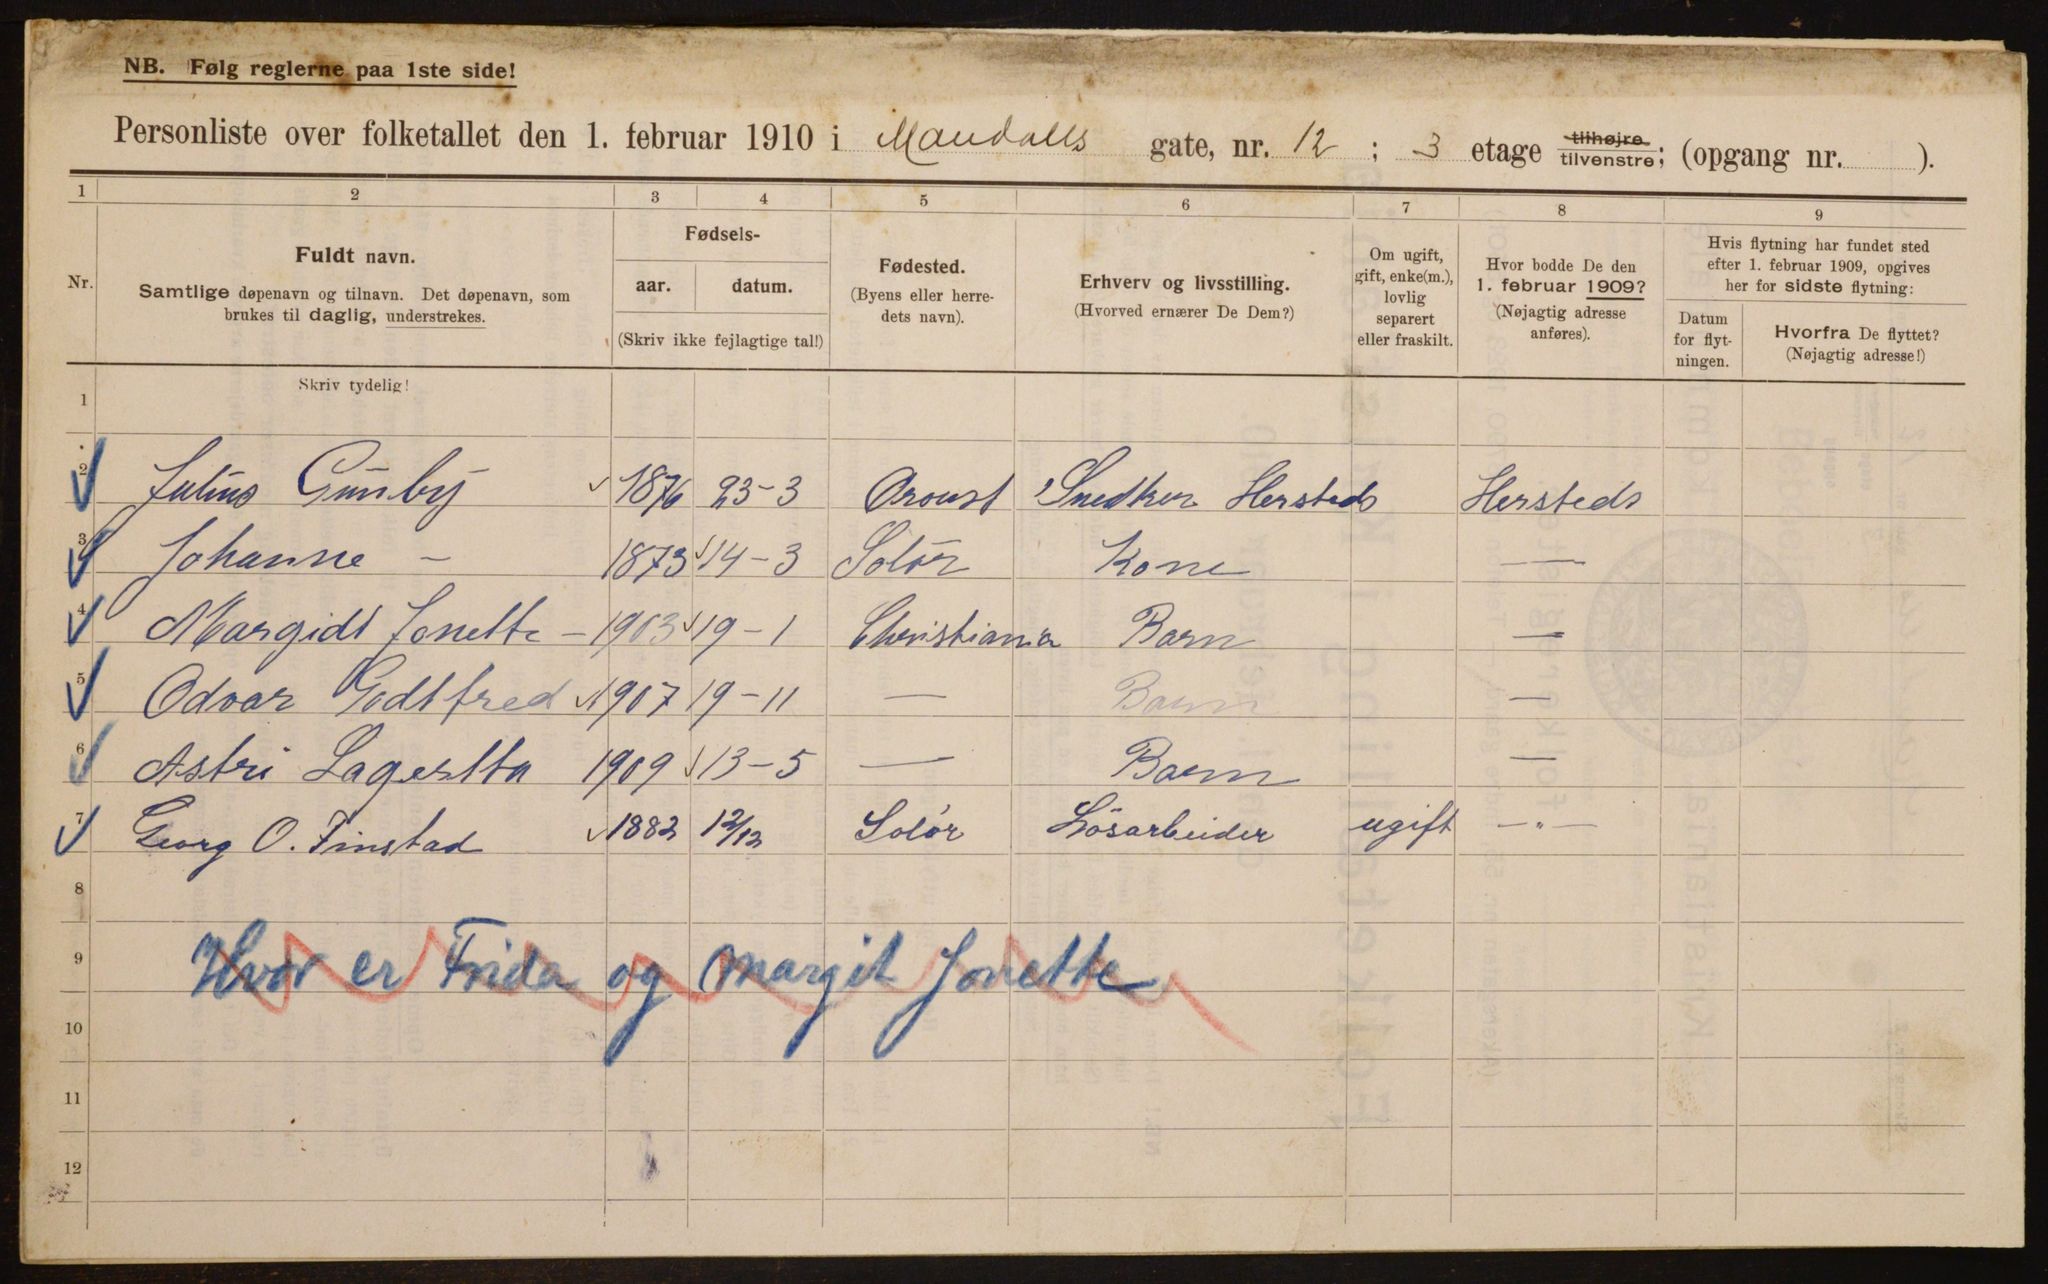 NB. Følg reglerne paa 1ste side!
Personliste over folketallet den 1. februar 1910 i Mandalls gate, nr. 12 ; 3 etage tilhøjre tilvenstre; (opgang nr. ).
1 2 3 4 5 6 7 8 9
Nr.
Fuldt navn.
Samtlige døpenavn og tilnavn. Det døpenavn, som
brukes til daglig, understrekes.
Fødsels-
aar. datum.
(Skriv ikke fejlagtige tal!)
Fødested.
(Byens eller herre-
dets navn).
Erhverv og livsstilling.
(Hvorved ernærer De Dem?)
Om ugift,
gift, enke(m.),
lovlig
separert
eller fraskilt.
Hvor bodde De den
1. februar 1909?
(Nøjagtig adresse
anføres).
Hvis flytning har fundet sted
efter 1. februar 1909, opgives
her for sidste flytning:
Datum
for flyt-
ningen.
Hvorfra De flyttet?
(Nøjagtig adresse!)
Skriv tydelig!
1
2 Julius Gunby 1876 23-3 Snedker Hersteds Hersteds
3 Johanne – 1873 14-3 Solör Kone —
4 Margidt Jonette – 1903 19-1 Christiania Barn —
5 Odvar Godtfred 1907 19-11 — Barn —
6 Astri Lagertta 1909 13-5 — Barn —
7 Georg O. Finstad 1882 12/12 Solör Lösarbeider ugift —"—
8
9 Hvor er Frida og Margit Jonette
10
11
12